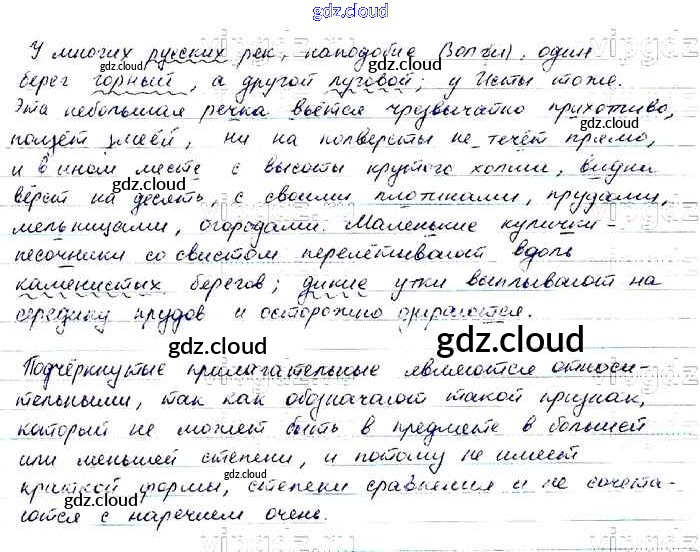 gdz.cloud
У многих русских рек, наподобие (Волги), один
берег горный, а другой луговой; у Исты тоже.
Эта небольшая речка вьётся чрезвычайно прихотливо,
ползёт змеёй, ни на полверсты не течёт прямо,
и в ином месте с высоты крутого холма, видна
вёрст на десять, с своими плотинами, прудами,
мельницами, огородами. Маленькие кулички-
песочники со свистом перелётывают вдоль
каменистых берегов; дикие утки выплывают на
середину прудов и осторожно озираются.
gdz.cloud
Подчёркнутые прилагательные являются относи-
тельными, так как обозначают такой признак,
который не может быть в предмете в большей
или меньшей степени, и потому не имеет
краткой формы, степени сравнения и не сочета-
ются с наречием очень.